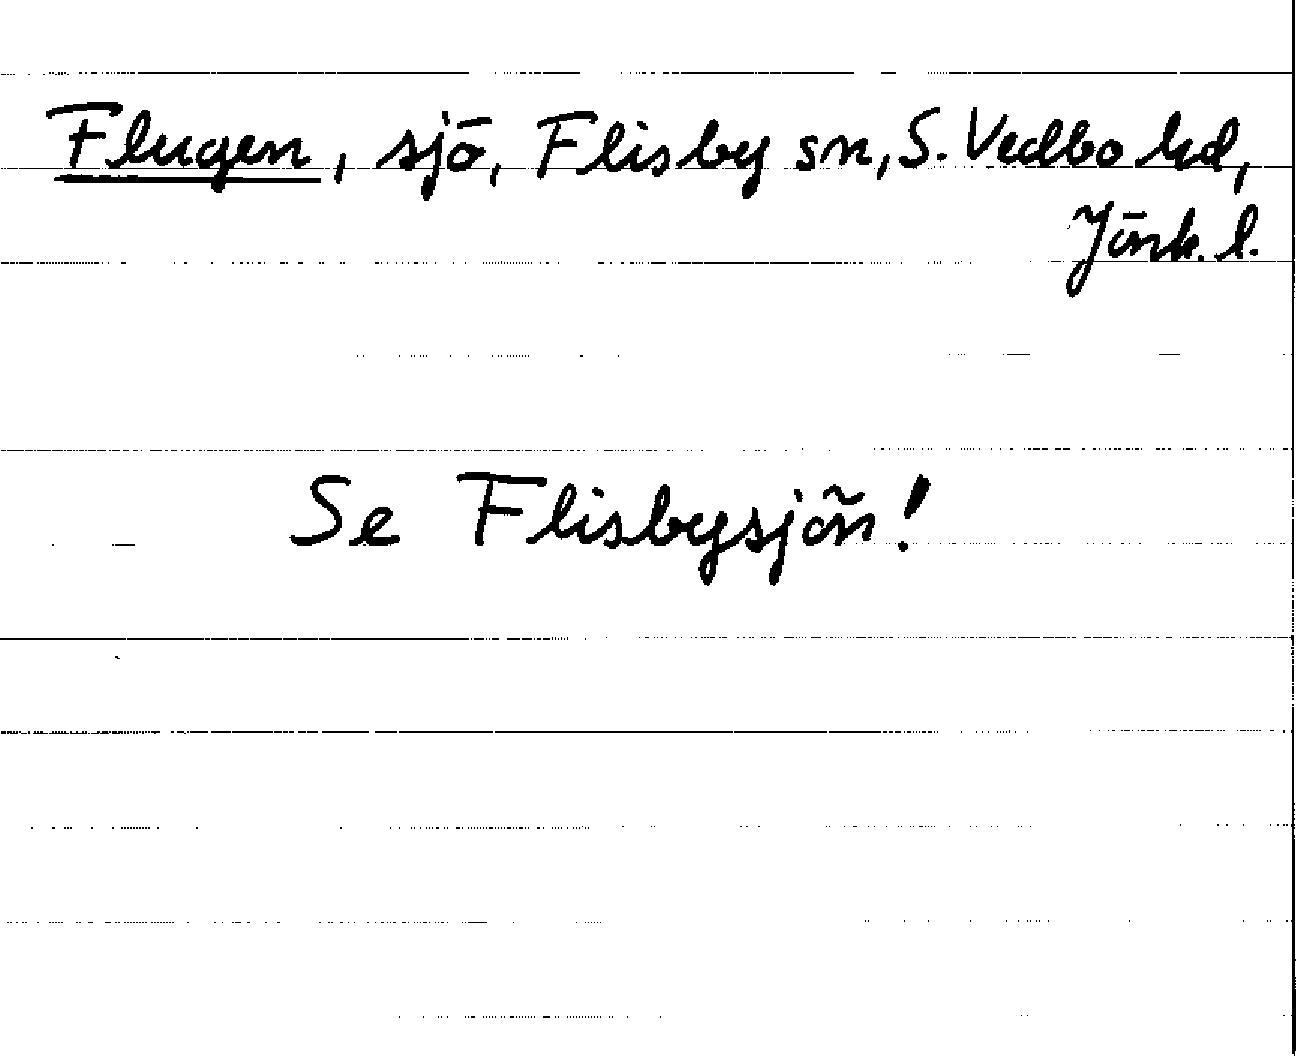 Flugen, sjö, Flisby sn, S. Vedbo hd,
Jönk. l.
Se Flisbysjön!